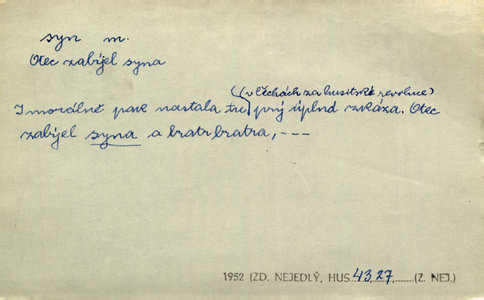 syn m.
Otec zabíjel syna
(v Čechách za husitské revoluce)
I morálně pak nastala tu prý úplná zkáza. Otec
zabíjel syna a bratr bratra, ---
1952 (ZD. NEJEDLÝ, HUS 43,27, (Z. NEJ.)